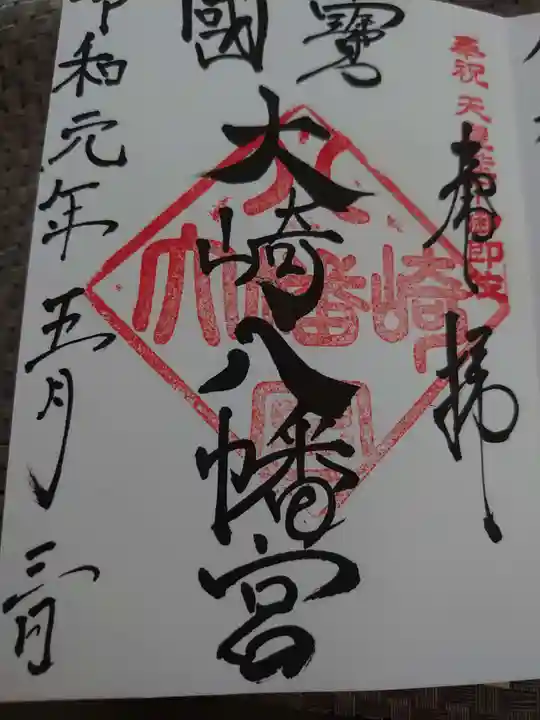 奉祝 天皇
奉拝
國寶
大崎八幡宮
大崎八幡宮
令和元年五月三日